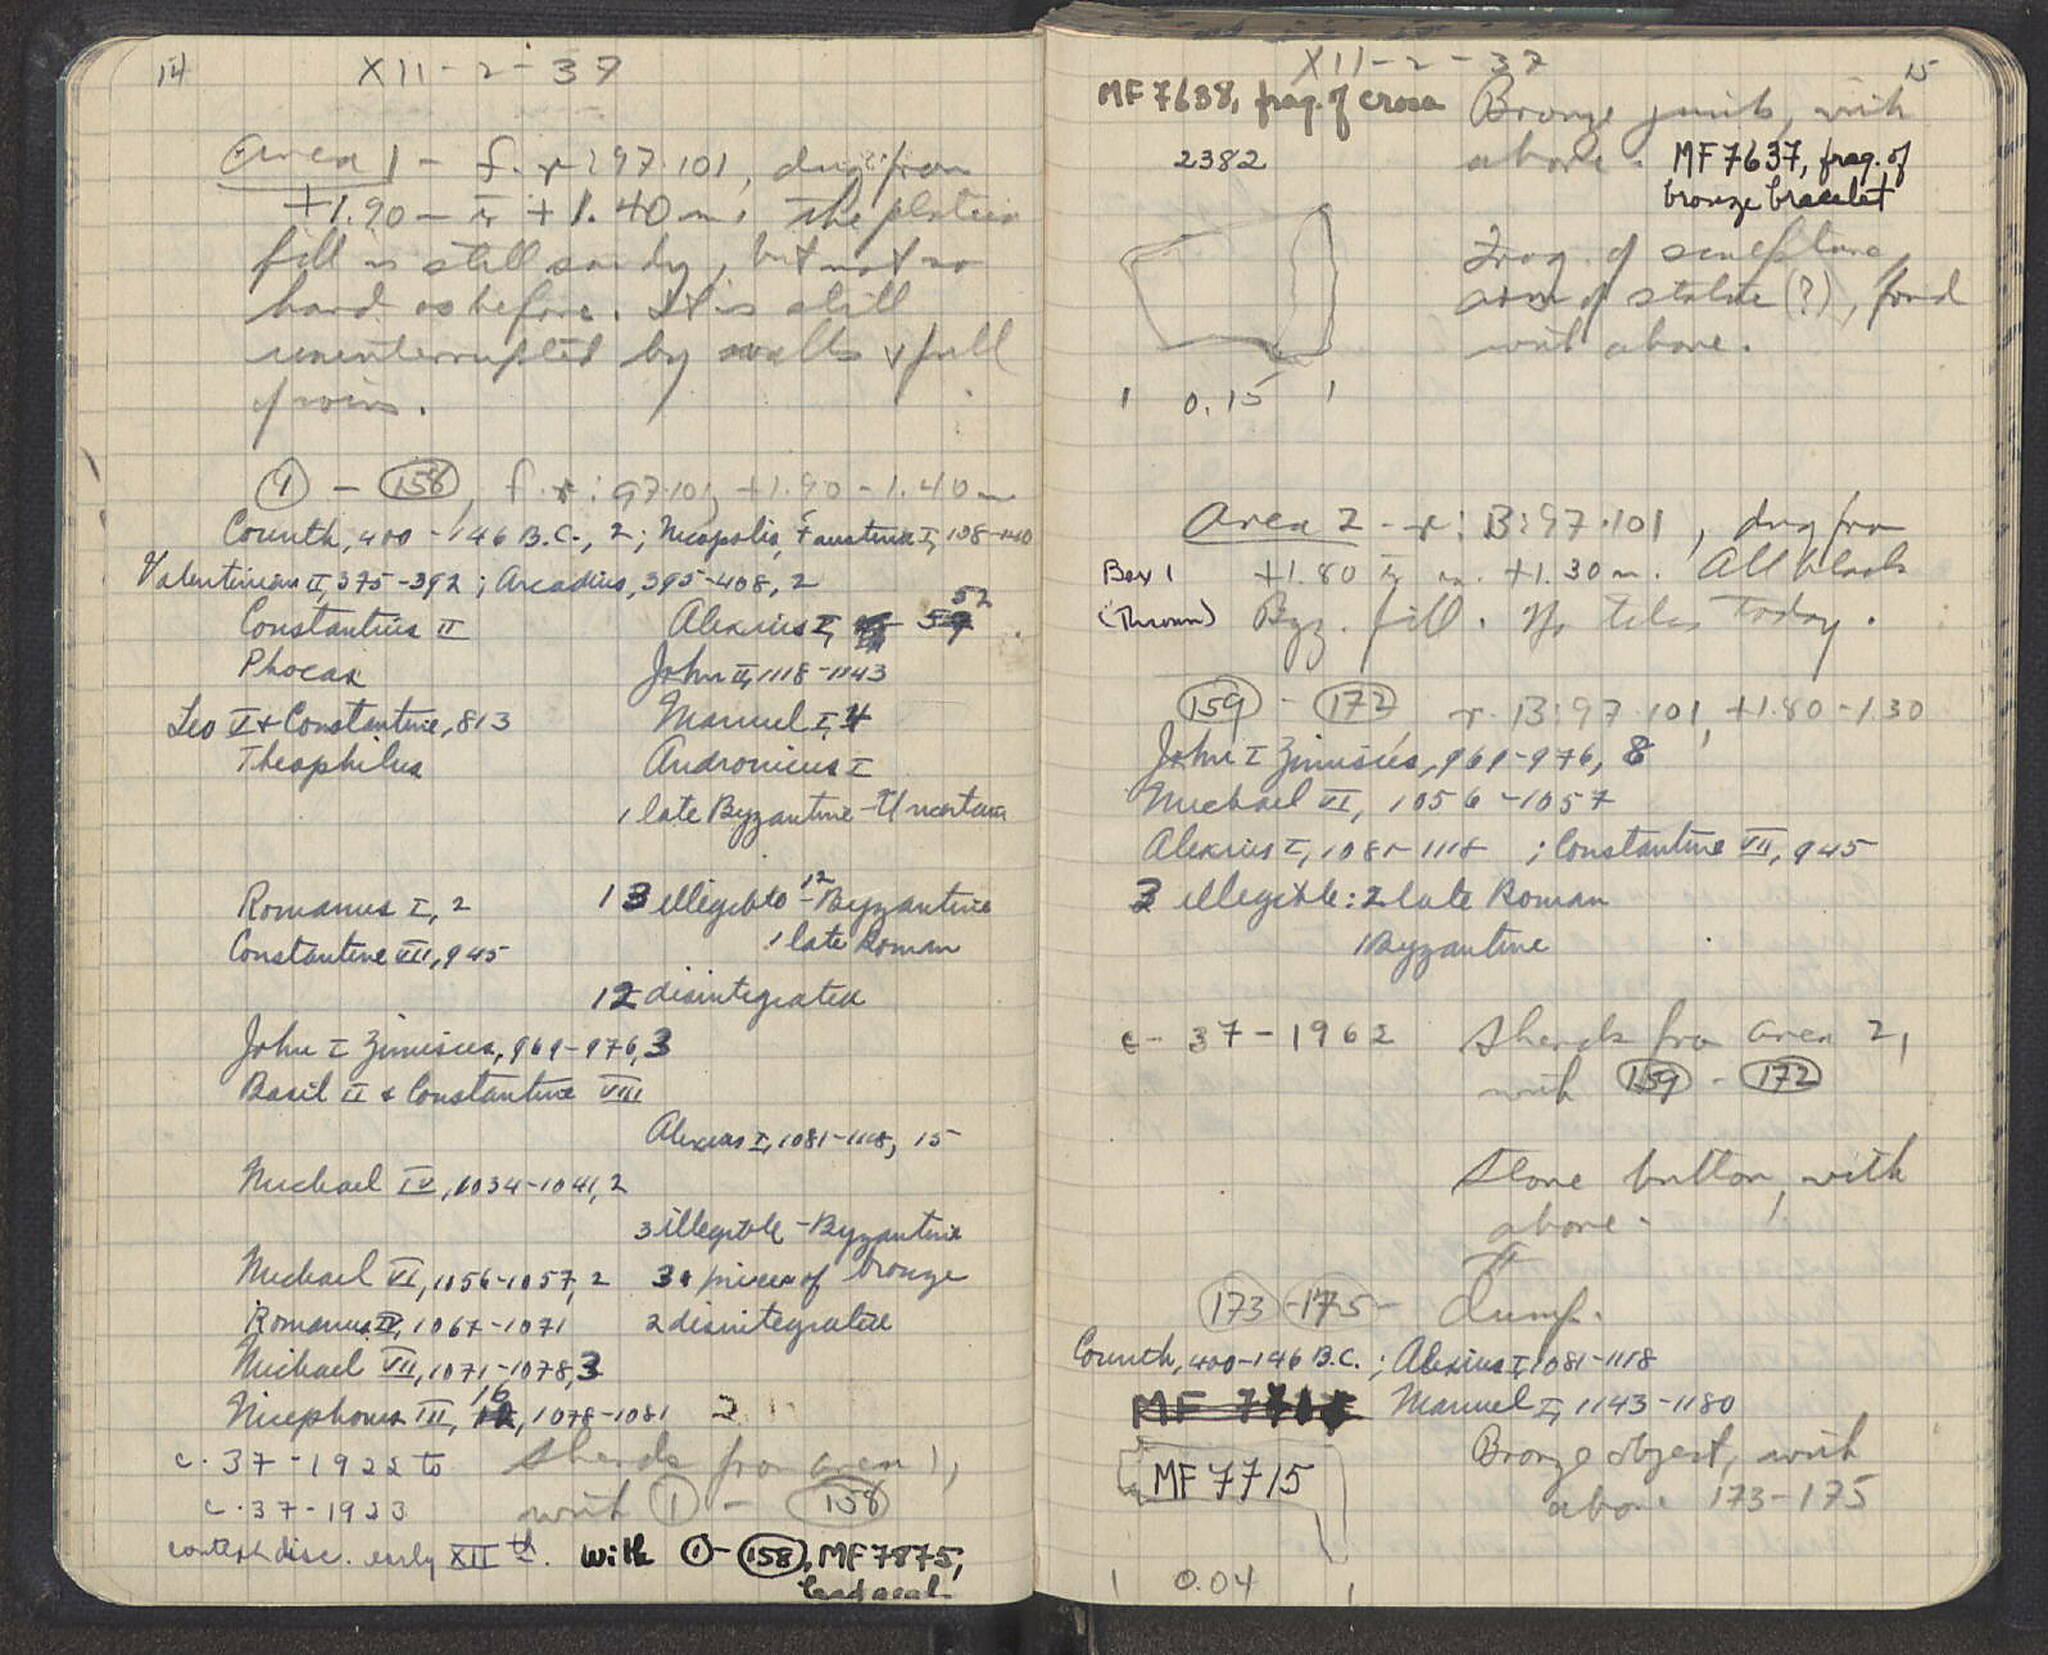 14
XII-2-37
Area 1 - f.-r:97.101, dug from
+1.90 - to +1.40 m. The plateia
fill is still sandy, but not so
hard as before. It is still
uninterrupted by walls & full
of coins.
1 - 158, f.-r:97.101, +1.90 - 1.40 m
Corinth, 400-146 B.C., 2; Nicopolis, Faustina I, 138-140
Valentinian II, 375-392; Arcadius, 395-408, 2
Constantius II
Phocas
Leo V + Constantine, 813
Theophilus
Alexius I, 52
John II, 1118-1143
Manuel I, 4
Andronicus I
1 late Byzantine - Uncertain
Romanus I, 2
Constantine VII, 945
13 illegible - 12 Byzantine
1 late Roman
12 disintegrated
John I Zimisces, 969-976, 3
Basil II & Constantine VIII
Alexius I, 1081-1118, 15
Michael IV, 1034-1041, 2
3 illegible - Byzantine
Michael VI, 1056-1057, 2
3 pieces of bronze
Romanus IV, 1067-1071
2 disintegrated
Michael VII, 1071-1078, 3
Nicephorus III, 16, 1078-1081
c.37-1922 to
c.37-1933
Sherds from area 1,
with 1 - 158
context disc. early XIIth.
with 1-158, MF 7875,
lead seal
XII-2-37
15
MF 7638, frag. of cross
2382
Bronze junk, with
above.
MF 7637, frag. of
bronze bracelet
Frag. of sculpture,
arm of statue (?), found
with above.
0.15
Area 2 - r:B:97.101, dug from
+1.80 to +1.30 m. All black
Byz. fill. No tiles today.
Box 1
(Thrown)
159 - 172 r.B:97.101, +1.80-1.30
John I Zimisces, 969-976, 8
Michael VI, 1056-1057
Alexius I, 1081-1118; Constantine VII, 945
3 illegible: 2 late Roman
1 Byzantine
c-37-1962 Sherds from area 2,
with 159 - 172
Stone button, with
above.
173-175- dump.
Corinth, 400-146 B.C.; Alexius I, 1081-1118
Manuel I, 1143-1180
MF 7715
Bronze object, with
above 173-175
0.04